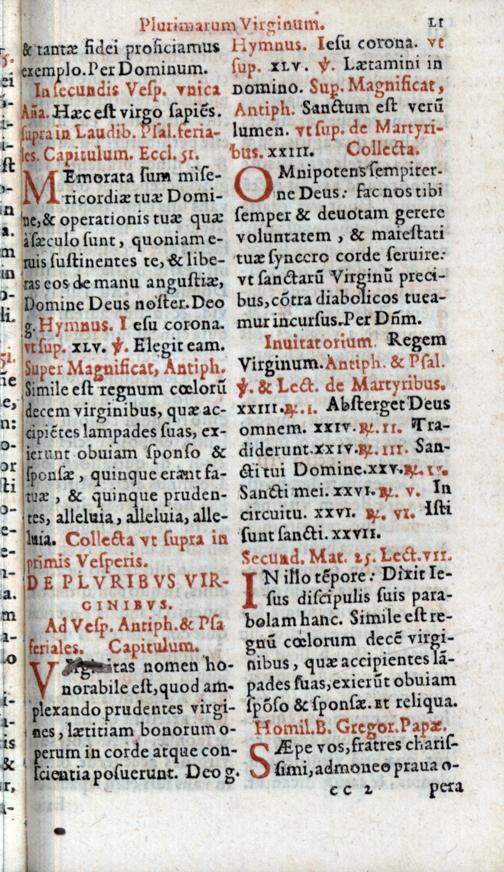 Plurimarum Virginum. LI
& tantæ fidei proficiamus
exemplo. Per Dominum.
In secundis Vesp. vnica
Aña. Hæc est virgo sapiẽs.
supra in Laudib. Psal. feria-
les. Capitulum. Eccl. 51.
MEmorata sum mise-
ricordiæ tuæ Domi-
ne, & operationis tuæ quæ
à sæculo sunt, quoniam e-
ruis sustinentes te, & libe-
ras eos de manu angustiæ,
Domine Deus noster. Deo
g. Hymnus. Iesu corona.
vt sup. XLV. ℣. Elegit eam.
Super Magnificat, Antiph.
Simile est regnum cœlorũ
decem virginibus, quæ ac-
cipiẽtes lampades suas, ex-
ierunt obuiam sponso &
sponsæ, quinque erãnt fa-
tuæ, & quinque pruden-
tes, alleluia, alleluia, alle-
luia. Collecta vt supra in
primis Vesperis.
DE PLVRIBVS VIR-
GINIBVS.
Ad Vesp. Antiph. & Psa
feriales. Capitulum.
Virginitas nomen ho-
norabile est, quod am-
plexando prudentes virgi-
nes, lætitiam bonorum o-
perum in corde atque con-
scientia posuerunt. Deo g.
Hymnus. Iesu corona. vt
sup. XLV. ℣. Lætamini in
domino. Sup. Magnificat,
Antiph. Sanctum est verũ
lumen. vt sup. de Martyri-
bus. XXIII. Collecta.
OMnipotens sempiter-
ne Deus: fac nos tibi
semper & deuotam gerere
voluntatem, & maiestati
tuæ syncero corde seruire:
vt sanctarũ Virginũ preci-
bus, cõtra diabolicos tuea-
mur incursus. Per Dñm.
Inuitatorium. Regem
Virginum. Antiph. & Psal.
℣. & Lect. de Martyribus.
XXIII. ℟. I. Absterget Deus
omnem. XXIV. ℟. II. Tra-
diderunt. XXIV. ℟. III. San-
cti tui Domine. XXV. ℟. IV.
Sancti mei. XXVI. ℟. V. In
circuitu. XXVI. ℟. VI. Isti
sunt sancti. XXVII.
Secund. Mat. 25. Lect. VII.
IN illo tẽpore: Dixit Ie-
sus discipulis suis para-
bolam hanc. Simile est re-
gnũ cœlorum decẽ virgi-
nibus, quæ accipientes lã-
pades suas, exierũt obuiam
spõso & sponsæ. Et reliqua.
Homil. B. Gregor. Papæ.
SÆpe vos, fratres chariss-
simi, admoneo praua o-
CC 2 pera